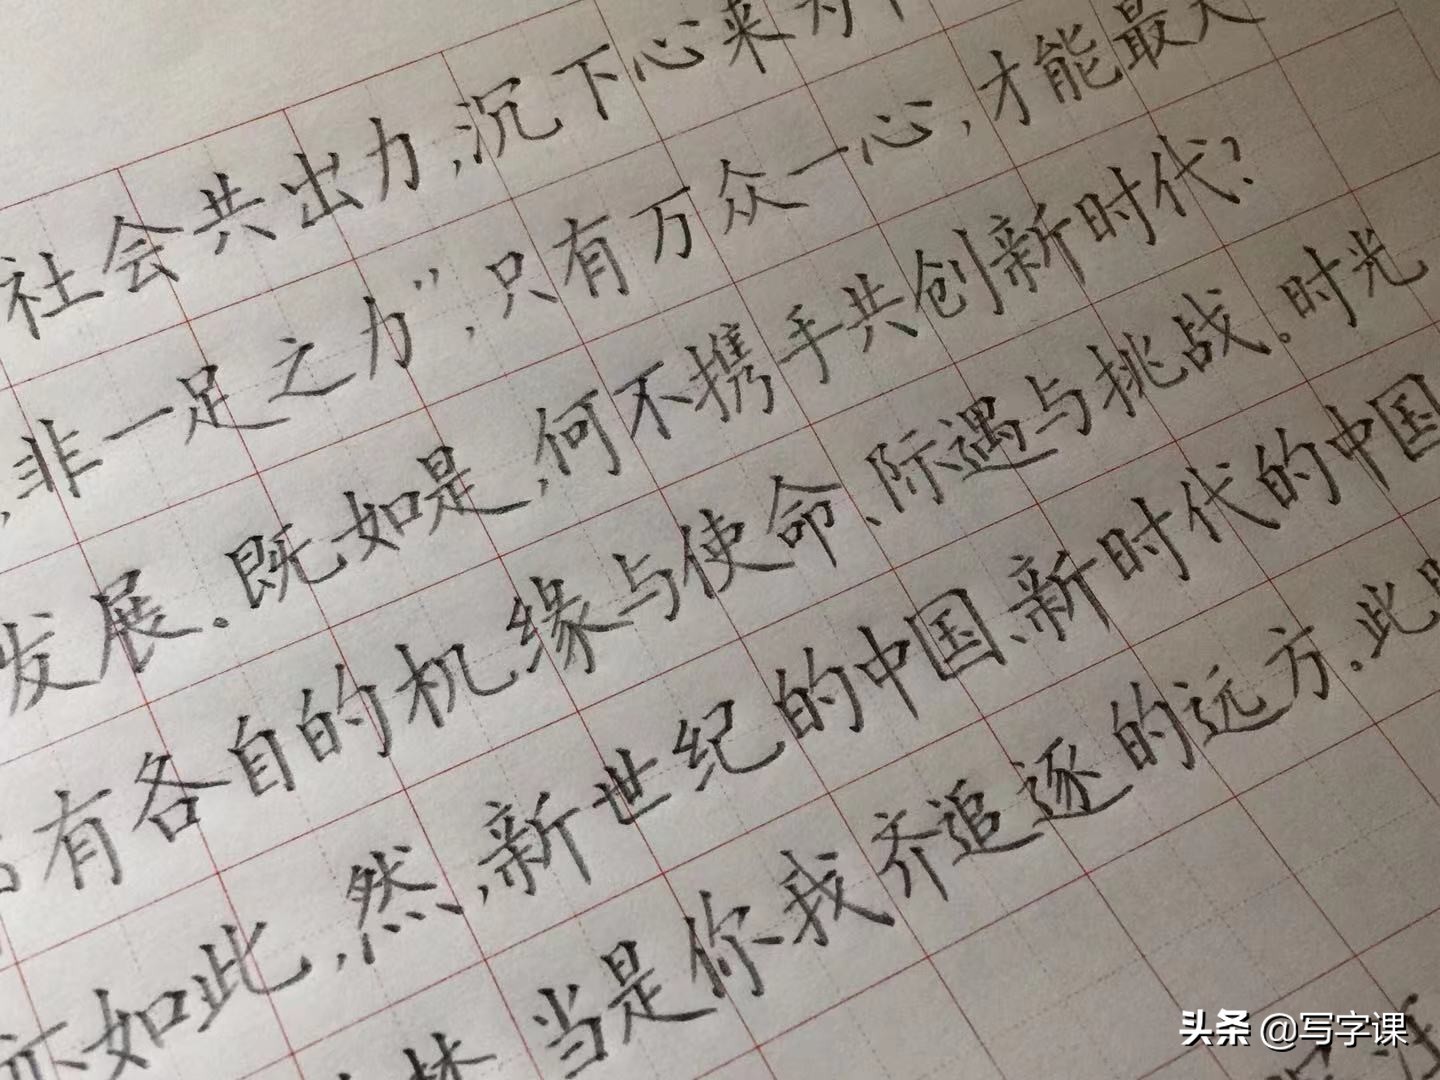 社会共出力,沉下心来为
,非一足之力”,只有万众一心,才能最大
发展。既如是,何不携手共创新时代?
有各自的机缘与使命、际遇与挑战。时光
亦如此,然,新世纪的中国、新时代的中国
当是你我齐追逐的远方。此
头条 @写字课